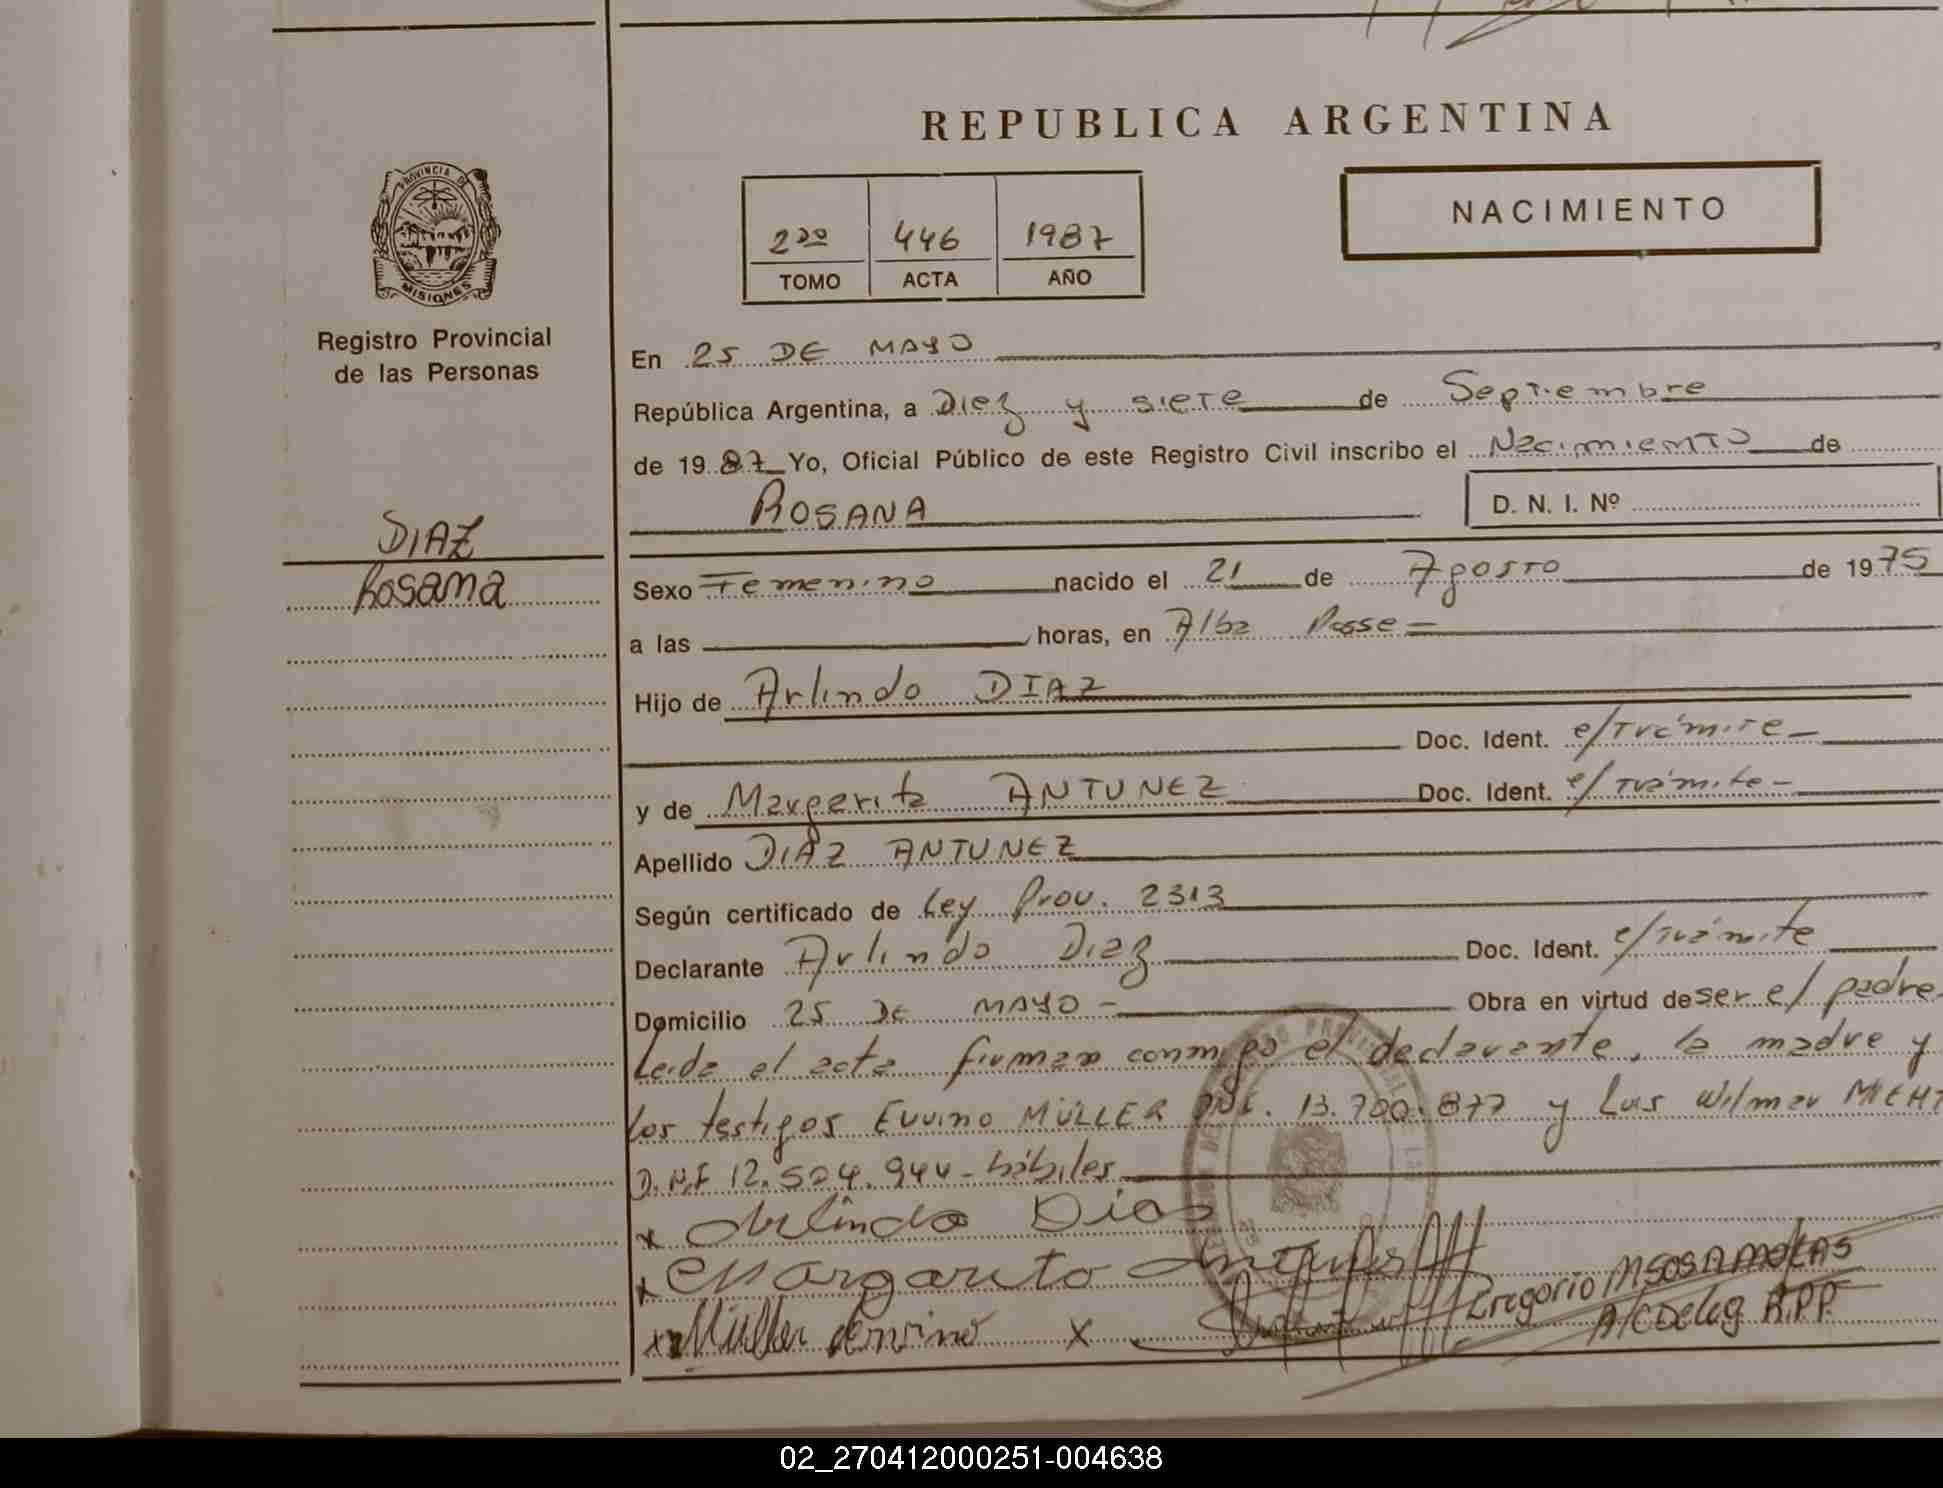 REPUBLICA ARGENTINA
PROVINCIA DE
MISIONES
Registro Provincial
de las Personas
2do 446 1987
TOMO ACTA AÑO
NACIMIENTO
En 25 DE MAYO
República Argentina, a Diez y siete de Septiembre
de 1987 Yo, Oficial Público de este Registro Civil inscribo el Nacimiento de
ROSANA D. N. I. Nº
DIAZ
Rosana
Sexo Femenino nacido el 21 de Agosto de 1975
a las horas, en Alba Posse
Hijo de Arlindo DIAZ
Doc. Ident. e/trámite
y de Margarita ANTUNEZ Doc. Ident. e/trámite
Apellido DIAZ ANTUNEZ
Según certificado de Ley Prov. 2313
Declarante Arlindo Diaz Doc. Ident. e/trámite
Domicilio 25 DE MAYO Obra en virtud de ser el padre
Leida el acta firman conmigo el declarante, la madre y
los testigos Ervino MÜLLER DNI. 13.700.877 y Luis Wilmar
D.N.I 12.504.944 - hábiles
x Arlindo Dias
x Margarita Antunes
x Müller Ervino x
Gregorio M SOSA MOLAS
A/C Deleg R.P.P.
02_270412000251-004638